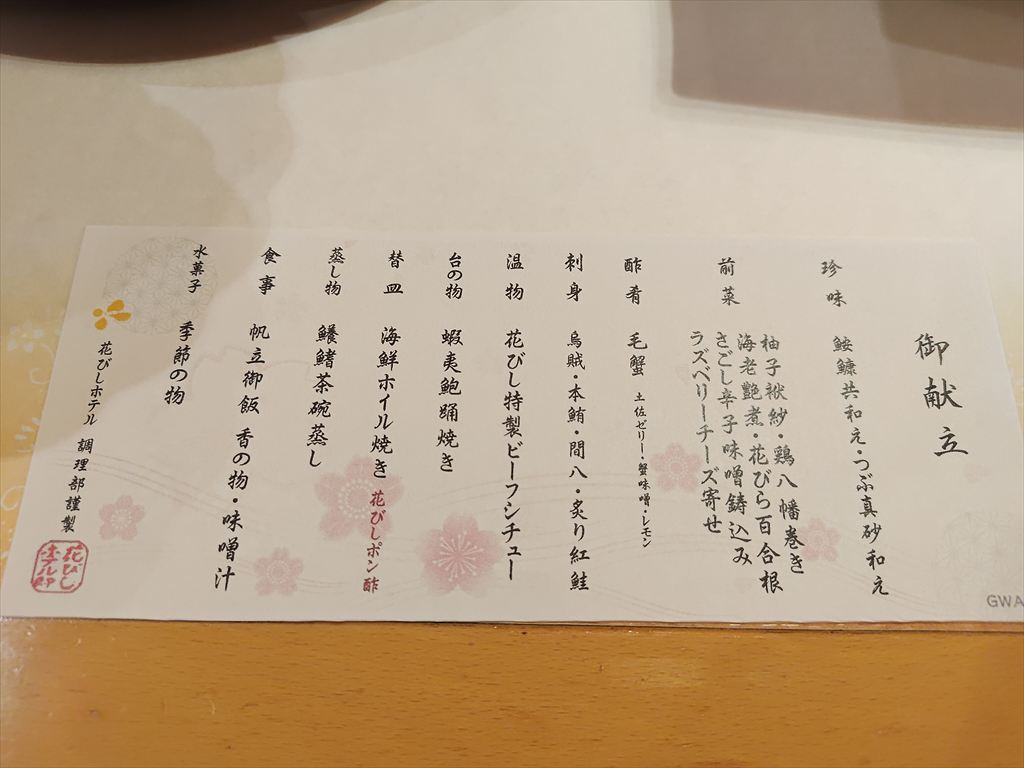 御献立
珍味 鮟鱇共和え・つぶ真砂和え
前菜 柚子袱紗・鶏八幡巻き
海老艶煮・花びら百合根
さごし辛子味噌鋳込み
ラズベリーチーズ寄せ
酢肴 毛蟹 土佐ゼリー・蟹味噌・レモン
刺身 烏賊・本鮪・間八・炙り紅鮭
温物 花びし特製ビーフシチュー
台の物 蝦夷鮑踊焼き
替皿 海鮮ホイル焼き 花びしポン酢
蒸し物 鱶鰭茶碗蒸し
食事 帆立御飯 香の物・味噌汁
水菓子 季節の物
花びしホテル 調理部謹製
花びしホテル印
GWA